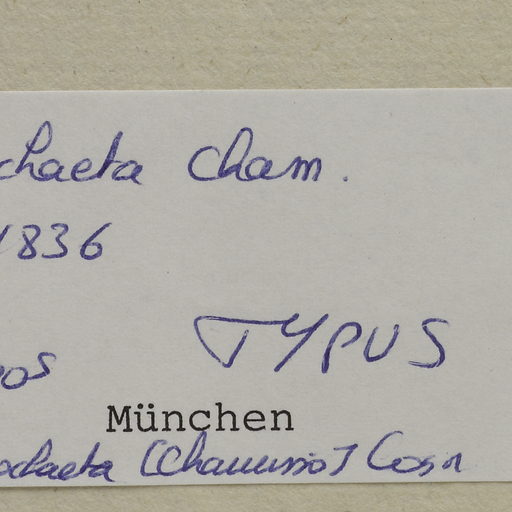 chaeta Cham.
1836
TYPUS
os
München
ochaeta (Chamisso)